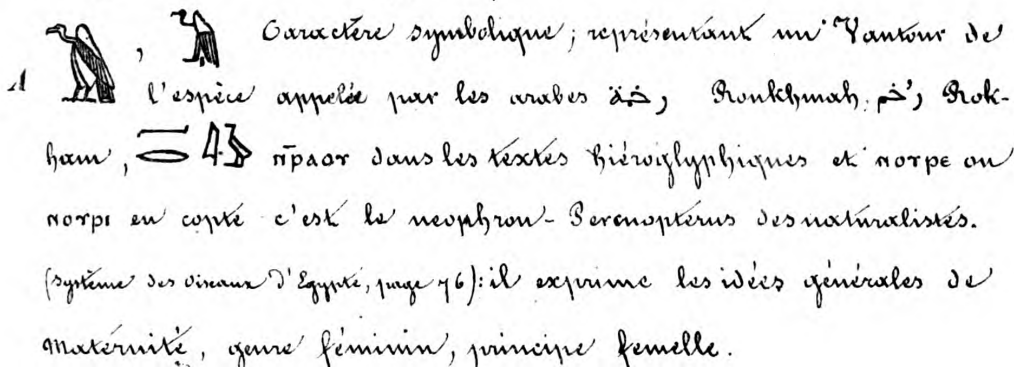 A 𓄿, 𓄿 Caractère symbolique ; représentant un Vautour de
l'espèce appelée par les arabes رخمة, Roukhmah, رخم, Rok-
ham, dans les textes hiéroglyphiques et ⲛⲟⲩⲣⲉ ou
ⲛⲟⲩⲣⲓ en copte c'est le neophron-Percnoptérus des naturalistes.
(Système des oiseaux d'Égypte, page 76) : il exprime les idées générales de
Maternité, genre féminin, principe femelle.